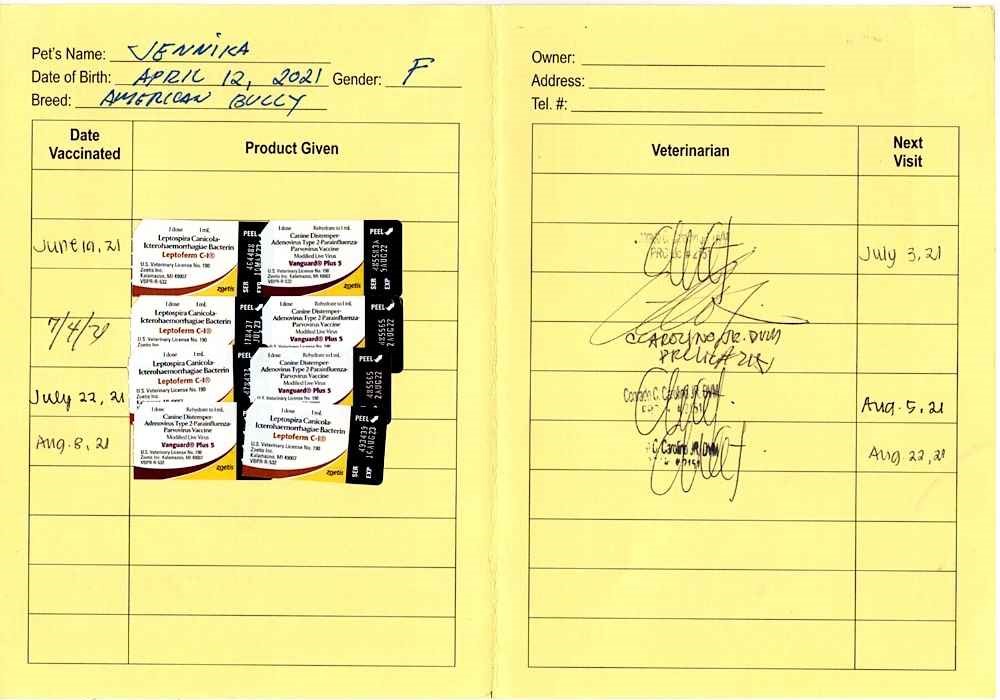 Pet's Name: JENNIKA
Date of Birth: APRIL 12, 2021 Gender: F
Breed: AMERICAN BULLY
Date Vaccinated
Product Given
June 19, 21
1 dose 1 mL
Leptospira Canicola-
Icterohaemorrhagiae Bacterin
Leptoferm C-I®
U.S. Veterinary License No. 190
Zoetis Inc.
Kalamazoo, MI 49007
VBPR-R-532
zoetis
PEEL
SER
EXP
1 dose Rehydrate to 1 mL
Canine Distemper-
Adenovirus Type 2-Parainfluenza-
Parvovirus Vaccine
Modified Live Virus
Vanguard® Plus 5
U.S. Veterinary License No. 190
Zoetis Inc. Kalamazoo, MI 49007
VBPR-R-532
zoetis
PEEL
SER 485583A
EXP 5AUG22
7/4/21
1 dose 1 mL
Leptospira Canicola-
Icterohaemorrhagiae Bacterin
Leptoferm C-I®
U.S. Veterinary License No. 190
Zoetis Inc.
PEEL
1 dose Rehydrate to 1 mL
Canine Distemper-
Adenovirus Type 2-Parainfluenza-
Parvovirus Vaccine
Modified Live Virus
Vanguard® Plus 5
PEEL
485565
2AUG22
July 22, 21
1 dose 1 mL
Leptospira Canicola-
Icterohaemorrhagiae Bacterin
Leptoferm C-I®
U.S. Veterinary License No. 190
PEEL
1 dose Rehydrate to 1 mL
Canine Distemper-
Adenovirus Type 2-Parainfluenza-
Parvovirus Vaccine
Modified Live Virus
Vanguard® Plus 5
PEEL
485565
2AUG22
Aug. 8, 21
1 dose Rehydrate to 1 mL
Canine Distemper-
Adenovirus Type 2-Parainfluenza-
Parvovirus Vaccine
Modified Live Virus
Vanguard® Plus 5
U.S. Veterinary License No. 190
Zoetis Inc. Kalamazoo, MI 49007
VBPR-R-532
zoetis
1 dose 1 mL
Leptospira Canicola-
Icterohaemorrhagiae Bacterin
Leptoferm C-I®
U.S. Veterinary License No. 190
Zoetis Inc.
Kalamazoo, MI 49007
VBPR-R-532
zoetis
PEEL
SER 493435
EXP
Owner:
Address:
Tel. #:
Veterinarian
Next Visit
July 3, 21
CAROLINO, JR. DVM
Conrado C. Carolino JR. DVM
Aug. 5, 21
C. Carolino JR. DVM
Aug. 22, 21